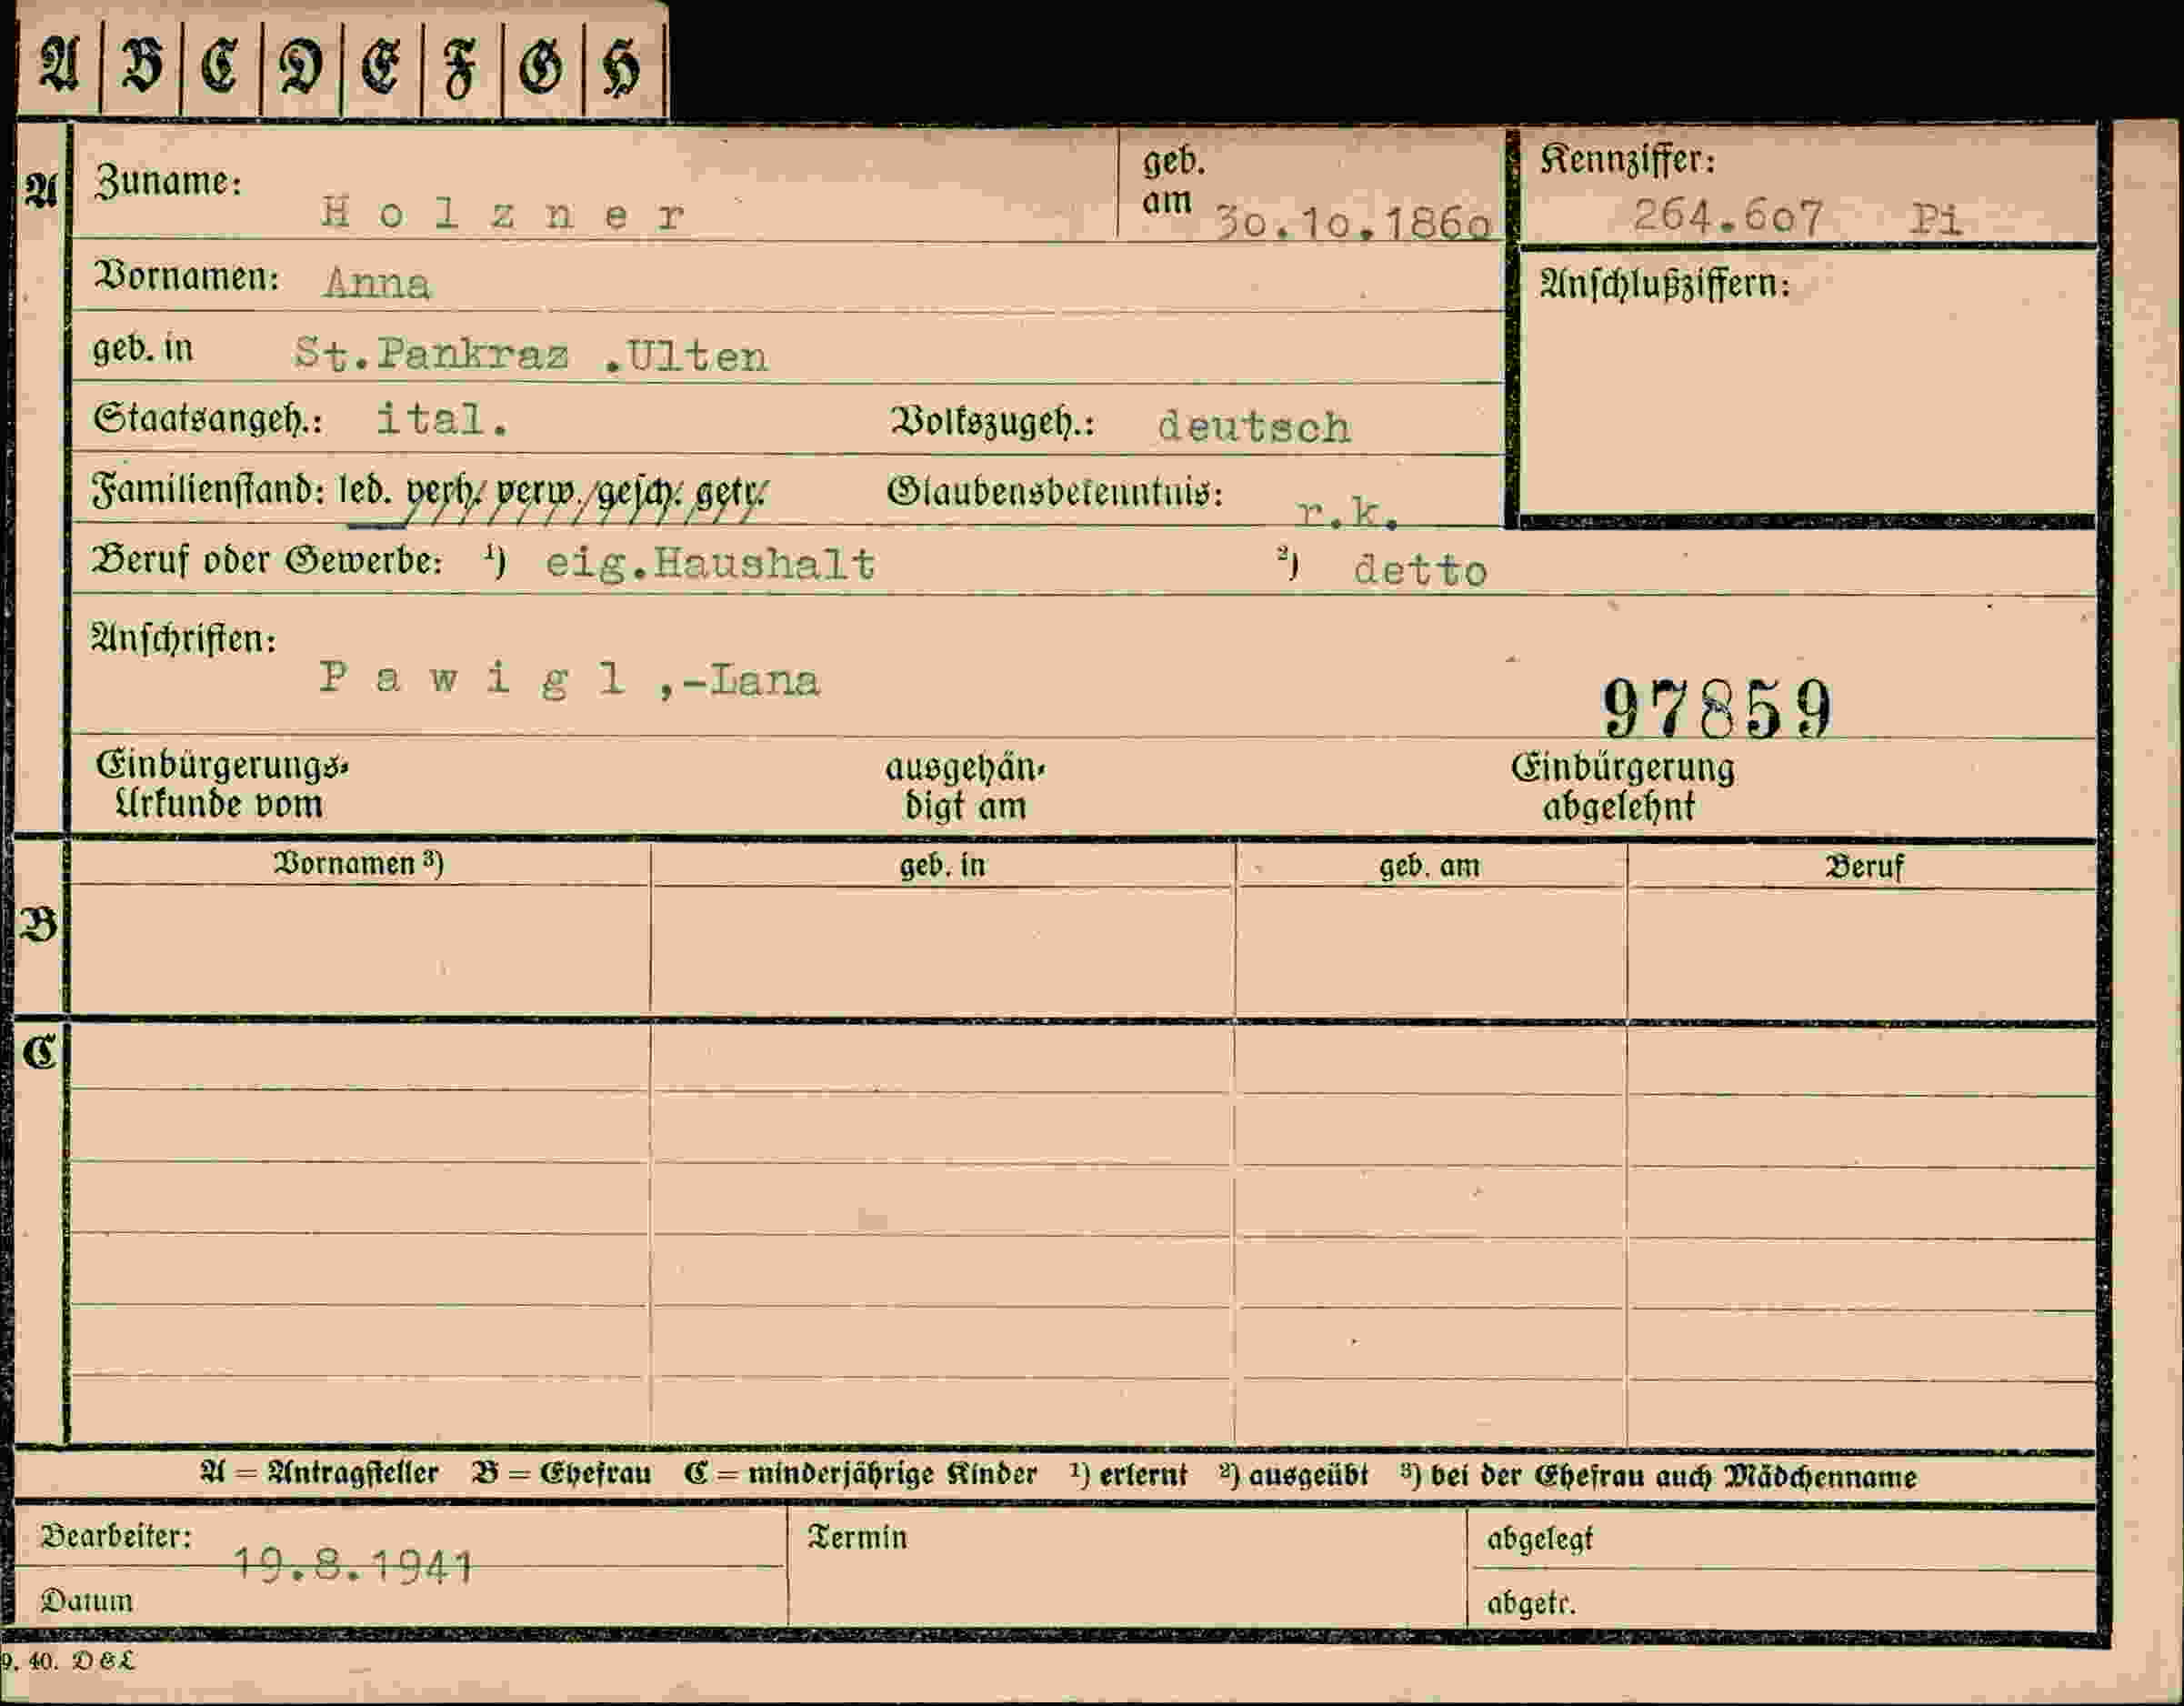 A B C D E F G H
A
Zuname: Holzner
geb. am 30.10.1860
Kennziffer: 264.607 Pi
Vornamen: Anna
Anschlußziffern:
geb. in St.Pankraz .Ulten
Staatsangeh.: ital. Volkszugeh.: deutsch
Familienstand: led. verh. verw. gesch. getr. Glaubensbekenntnis: r.k.
Beruf oder Gewerbe: ¹) eig.Haushalt ²) detto
Anschriften:
Pawigl,-Lana
97859
Einbürgerungs- ausgehän- Einbürgerung
Urkunde vom digt am abgelehnt
Vornamen ³) geb. in geb. am Beruf
B
C
A = Antragsteller B = Ehefrau C = minderjährige Kinder ¹) erlernt ²) ausgeübt ³) bei der Ehefrau auch Mädchenname
Bearbeiter: Termin abgelegt
19.8.1941
Datum abgetr.
9. 40. D & L